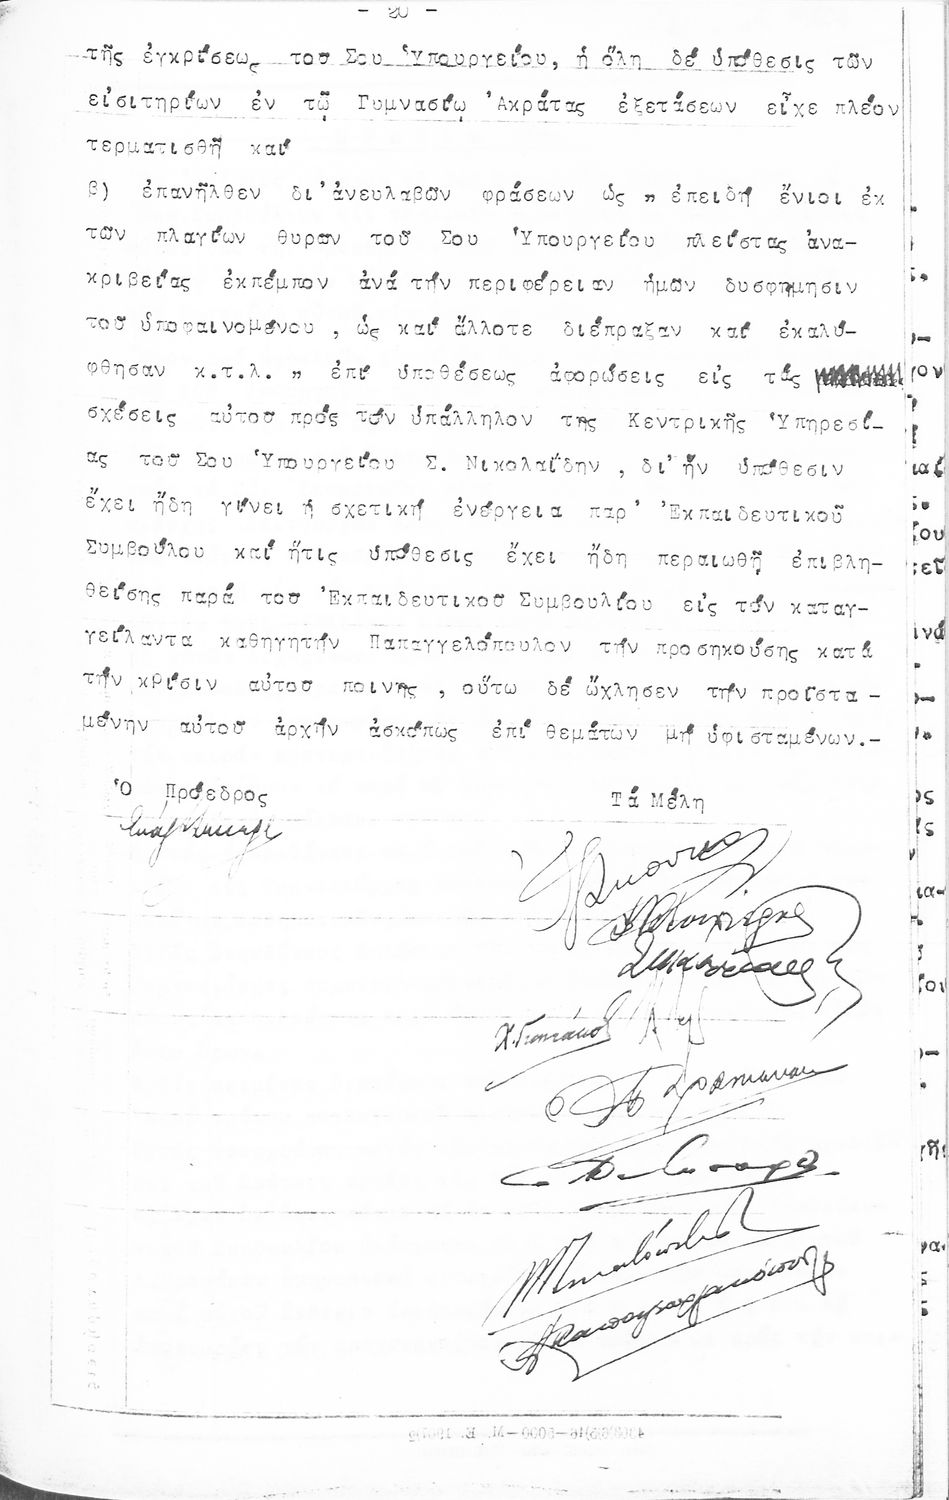 - 20 -
τῆς ἐγκρίσεως του Σου Ὑπουργείου, ἡ ὅλη δέ ὑπόθεσις τῶν
εἰσιτηρίων ἐν τῷ Γυμνασίῳ Ἀκράτας ἐξετάσεων εἶχε πλέον
τερματισθῆ καί
β) ἐπανῆλθεν δι' ἀνευλαβῶν φράσεων ὡς " ἐπειδή ἔνιοι ἐκ
τῶν πλαγίων θυρῶν τοῦ Σου Ὑπουργείου πλείστας ἀνα-
κριβείας ἐκπέμπον ἀνά τήν περιφέρειαν ἡμῶν δυσφήμησιν
του ὑποφαινομένου , ὡς καί ἄλλοτε διέπραξαν καί ἐκαλύ-
φθησαν κ.τ.λ. " ἐπί ὑποθέσεως ἀφορώσεις εἰς τάς
σχέσεις αὐτου πρός τόν ὑπάλληλον της Κεντρικῆς Ὑπηρεσί-
ας του Σου Ὑπουργείου Σ. Νικολαΐδην , δι' ἥν ὑπόθεσιν
ἔχει ἤδη γίνει ἡ σχετική ἐνέργεια παρ' Ἐκπαιδευτικοῦ
Συμβούλου καί ἥτις ὑπόθεσις ἔχει ἤδη περαιωθῆ ἐπιβλη-
θείσης παρά του Ἐκπαιδευτικου Συμβουλίου εἰς τόν καταγ-
γείλαντα καθηγητήν Παπαγγελόπουλον τήν προσηκούσης κατά
τήν κρίσιν αὐτου ποινης , οὕτω δέ ὤχλησεν τήν προϊστα -
μένην αὐτου ἀρχήν ἀσκόπως ἐπί θεμάτων μή ὑφισταμένων.-
Ὁ Πρόεδρος
Τά Μέλη